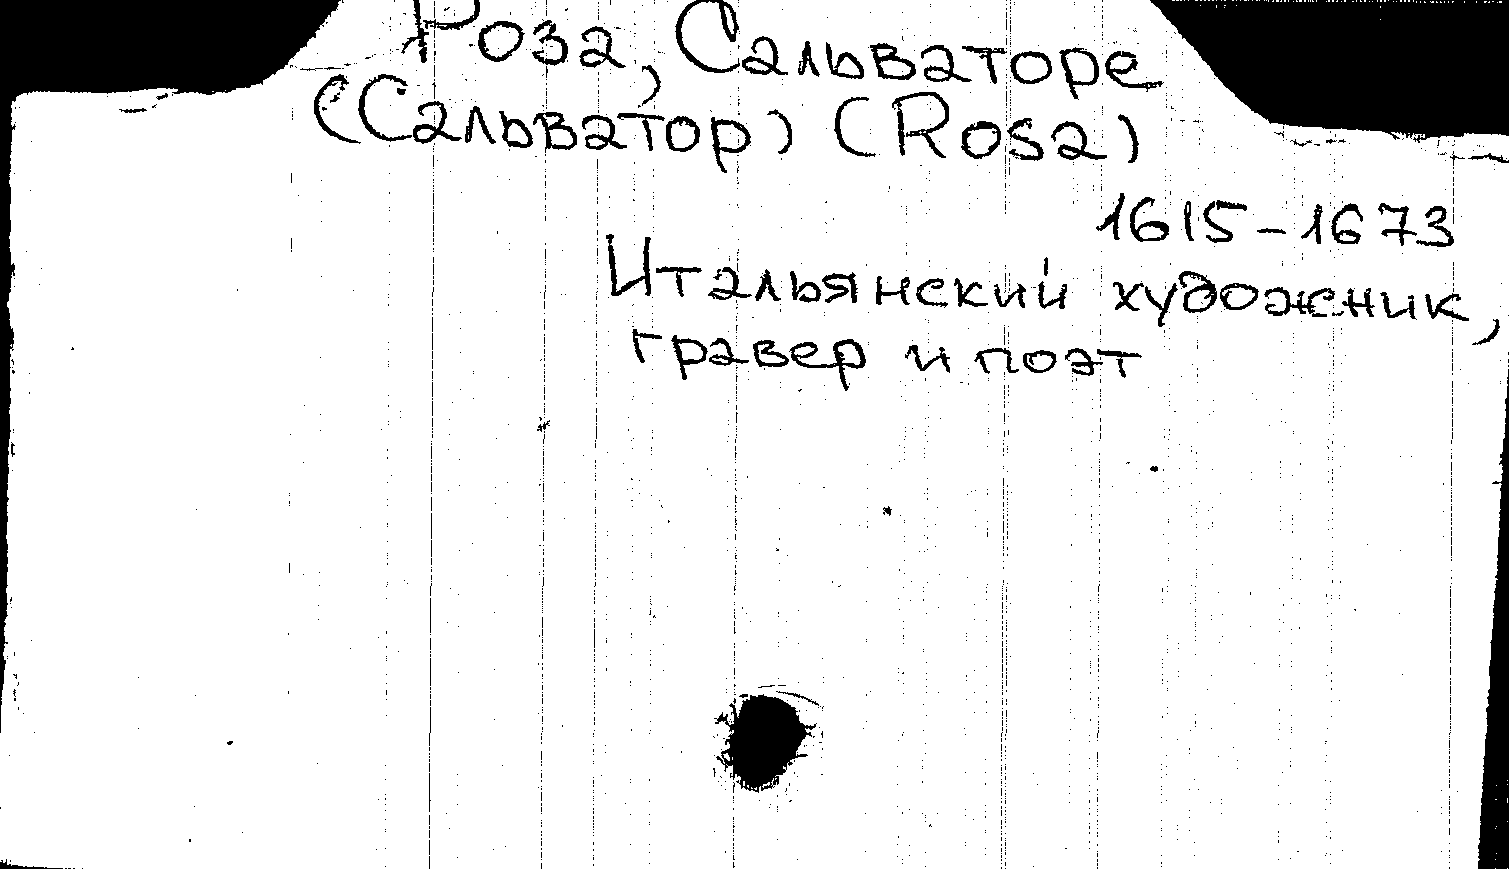 Роза, Сальваторе
(Сальватор) (Rosa)
1615-1673
Итальянский художник,
гравер и поэт